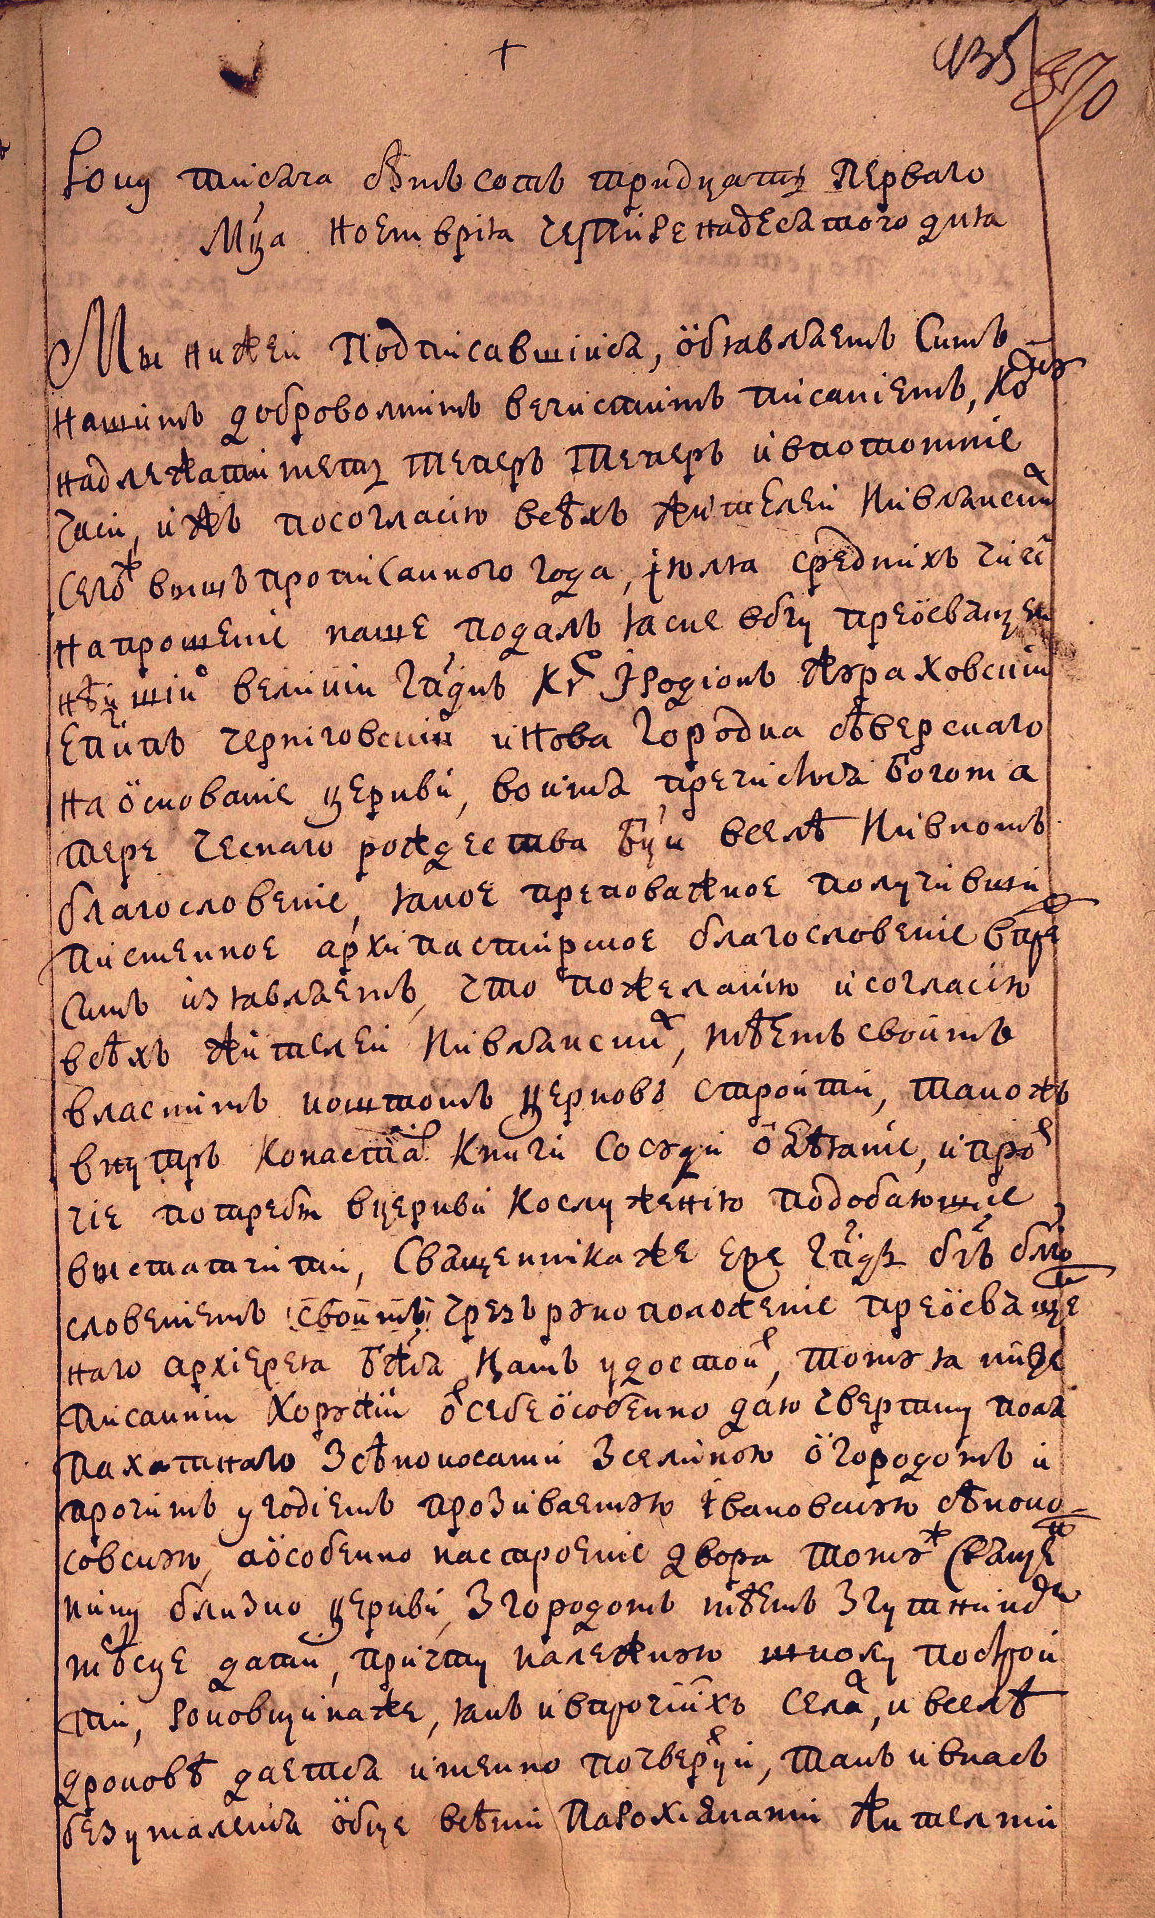 435 370
Року тисяча сѣмъсотъ тридцатъ первого
Мца ноемврія четиренадесятого дня
Мы нижей подписавшійся, ѡбявляемъ симъ
нашимъ доброволнимъ вечистимъ писаніемъ, ко
надлежатиметъ теперъ теперъ и впотомніе
часи, ижъ посогласію всѣхъ жителей Кивлянски
сегож вишъ прописанного года, іюля среднихъ чисе
на прошеніе наше подалъ яснеѡ преѡсвящен
нѣйшій великій гпднъ Кѵ Іродіонъ Жураховскій
Епипъ черніговскій и Нова городка сѣверского
на ѡснованіе церкви, во имя пречистыя богома
тере чеснаго рождества бци вселѣ Кивкомъ
благословеніе, якое преповажное получивши
писменное архипастирское благословеніе впре
симъ изявляемъ, что пожеланію и согласію
всѣхъ жителей Кивлянски, мѣемъ своимъ
властнимъ коштомъ церковъ строити, такожъ
внутръ иконаста книги сосуди ѡдѣяніе, и про
чіе потреби вцеркви кослуженію подобающіе
вистатчити, Священникаже еже гпдь бгъ блго
словеніемъ своимъ чрезъ рукоположеніе преѡсвяще
ного архіерея бжія намъ удостои, тому я ниже
писанній Хоружій ѿ себе ѡсобенно даю чвертку поля
пахатного зсѣнокосами зселібою ѡгородомъ и
прочимъ угодіемъ прозиваемую Івановскую сѣноко
совскую, аѡсобенно настроеніе двора томуж свяще
нику близко церкви, згородомъ мѣемъ згу
мѣсце дати, причту належную школу построи
ти, роковщинаже, якъ ивпрочіихъ села, и вселѣ
дроковѣ дается именно почверци, такъ и внасъ
безумаленія ѡбще всѣми парохіянами жителми